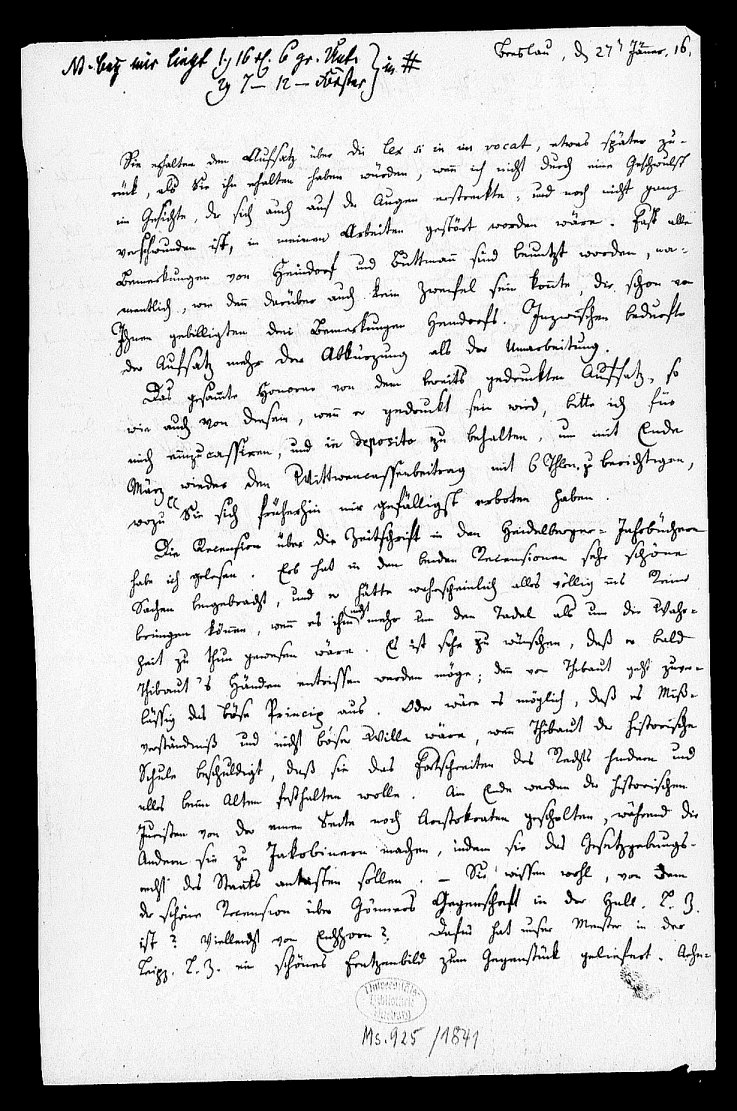 NB. bey mir liegt 1) 16 rl. 6 gr. Unt.
2) 7 — 12 — Unster } in #
Breslau, d. 27n Jänner. 16.
Sie erhalten den Aufsatz über die lex si in ius vocat, etwas später zu-
rück, als Sie ihn erhalten haben würden, wenn ich nicht durch eine Geschwulst
im Gesichte, die sich auch auf die Augen erstreckte, und noch nicht ganz
verschwunden ist, in meinen Arbeiten gestört worden wäre. Fast alle
Bemerkungen von Heindorf und Buttmann sind benutzt worden, na-
mentlich, wie denn darüber auch kein Zweifel sein konnte, die schon von
Ihnen gebilligten drei Bemerkungen Heindorfs. Inzwischen bedurfte
der Aufsatz mehr der Abkürzung als der Umarbeitung.
Das gesamte Honorar von dem bereits gedruckten Aufsatz, so
wie auch von diesem, wenn er gedruckt sein wird, bitte ich für
mich einzucassiren, und in deposito zu behalten, um mit Ende
März wieder den Wittwencassenbeitrag mit 6 Thlrn. zu berichtigen,
wozu Sie sich früherhin mir gefälligst erboten haben.
Die Recension über die Zeitschrift in den Heidelberger-Jahrbüchern
habe ich gelesen. Er hat in den beiden Recensionen sehr schöne
Sachen beigebracht, und er hätte wahrscheinlich alles völlig ins Reine
bringen können, wenn es ihm nicht mehr um den Tadel als um die Wahr-
heit zu thun gewesen wäre. Es ist sehr zu wünschen, daß er bald
Thibaut's Händen entrissen werden möge; denn von Thibaut geht zuver-
lässig das böse Princip aus. Oder wäre es möglich, daß es Miß-
verständniß und nicht böser Wille wäre, wenn Thibaut die historische
Schule beschuldigt, daß sie das Fortschreiten des Rechts hindern und
alles beim Alten festhalten wolle. Am Ende werden die historischen
Juristen von der einen Seite noch Aristokraten gescholten, während die
Andern sie zu Jakobinern machen, indem sie das Gesetzgebungs-
recht des Staats antasten sollen. — Sie wissen wohl, von wem
die schöne Recension über Gönners Gegenschrift in der Hall. L. Z.
ist? Vielleicht von Eichhorn? Dafür hat unser Meister in der
Leipz. L. Z. ein schönes Fratzenbild zum Gegenstück geliefert. Aehn-
Universitäts
Bibliothek
Marburg
Ms. 925 /1841